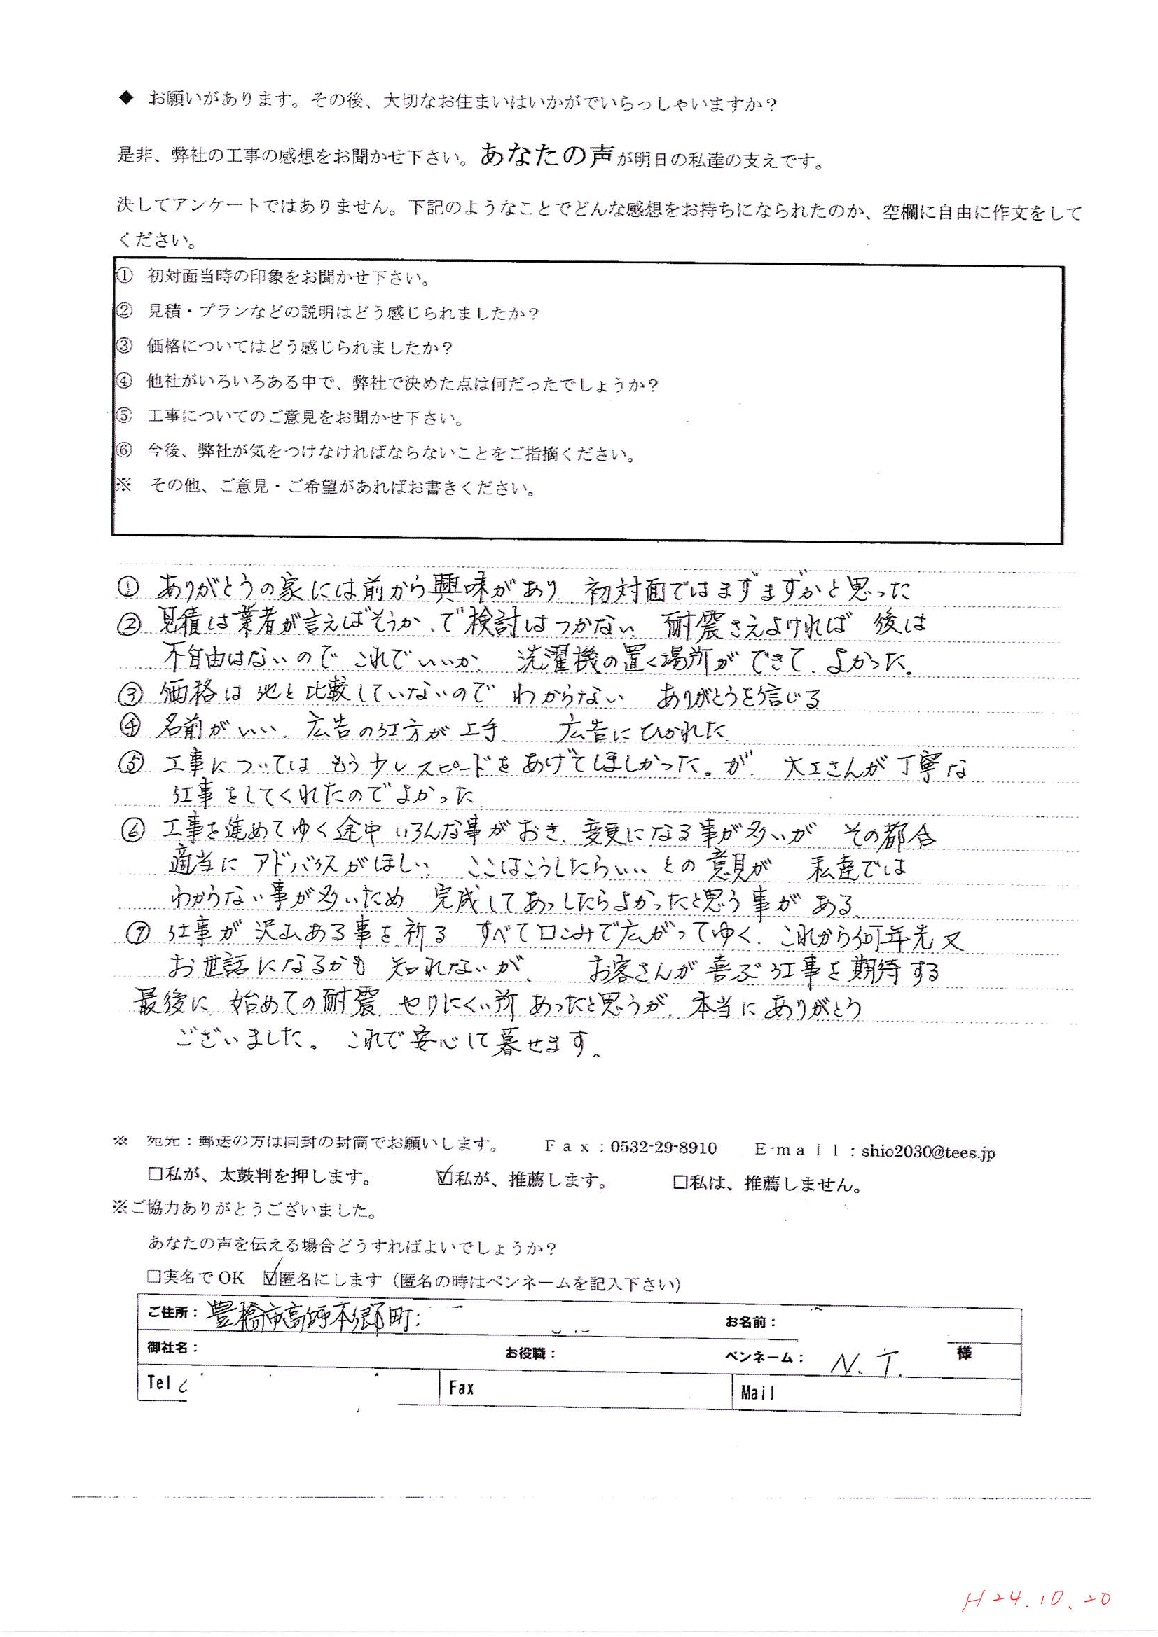 ◆ お願いがあります。その後、大切なお住まいはいかがでいらっしゃいますか？
是非、弊社の工事の感想をお聞かせ下さい。あなたの声が明日の私達の支えです。
決してアンケートではありません。下記のようなことでどんな感想をお持ちになられたのか、空欄に自由に作文をして
ください。
① 初対面当時の印象をお聞かせ下さい。
② 見積・プランなどの説明はどう感じられましたか？
③ 価格についてはどう感じられましたか？
④ 他社がいろいろある中で、弊社で決めた点は何だったでしょうか？
⑤ 工事についてのご意見をお聞かせ下さい。
⑥ 今後、弊社が気をつけなければならないことをご指摘ください。
※ その他、ご意見・ご希望があればお書きください。
① ありがとうの家には前から興味があり 初対面ではまずまずかと思った
② 見積は業者が言えばそうか、で検討はつかない 耐震さえよければ 後は
不自由はないので これでいいか 洗濯機の置く場所ができて、よかった。
③ 価格は 他と比較していないので わからない ありがとうを信じる
④ 名前がいい、広告の仕方が上手 広告にひかれた
⑤ 工事については もう少しスピードをあげてほしかった。が、大工さんが丁寧な
仕事をしてくれたのでよかった
⑥ 工事を進めてゆく途中 いろんな事がおき、変更になる事が多いが その都合
適当に アドバイスがほしい ここはこうしたらいい との意見が 私達では
わからない事が多いため 完成してあゝしたらよかったと思う事がある
⑦ 仕事が沢山ある事を祈る すべて口コミで広がってゆく、これから何年先又
お世話になるかも 知れないが、 お客さんが喜ぶ仕事を期待する
最後に 始めての耐震 やりにくい所あったと思うが、本当にありがとう
ございました。 これで安心して暮せます。
※ 宛先：郵送の方は同封の封筒でお願いします。 Fax：0532-29-8910 E-mail：shio2030@tees.jp
□私が、太鼓判を押します。 ☑私が、推薦します。 □私は、推薦しません。
※ご協力ありがとうございました。
あなたの声を伝える場合どうすればよいでしょうか？
□実名でOK ☑匿名にします（匿名の時はペンネームを記入下さい）
ご住所：豊橋市高師本郷町 お名前：
御社名： お役職： ペンネーム： N.T. 様
Tel Fax Mail
H24.10.20